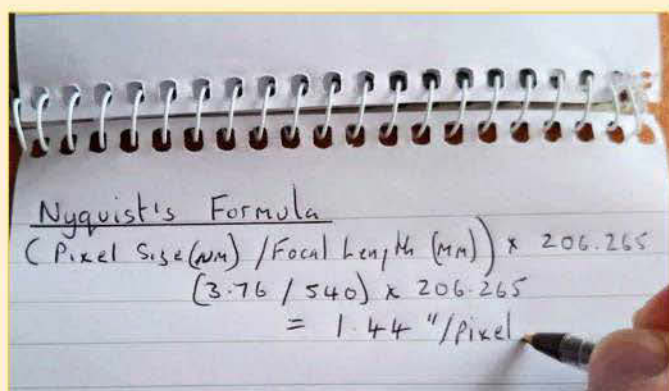 Nyquist's Formula
(Pixel Size(NM) / Focal Length (MM)) × 206.265
(3.76 / 540) × 206.265
= 1.44 "/pixel